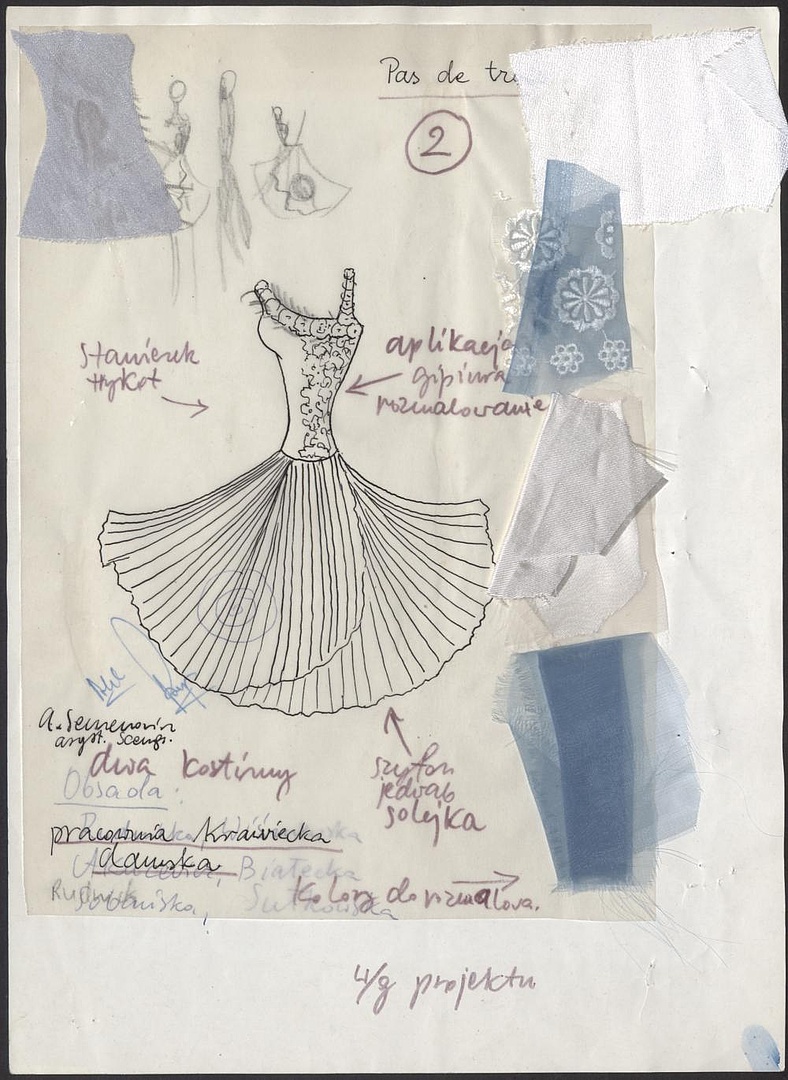 Pas de tr
2
Staniczek
trykot
aplikacja
gipiura
rozmalowanie
A. Semenowicz
asyst. scenogr.
dwa kostiumy
Obsada:
szyfon
jedwab
solejka
pracownia krawiecka
damska
Białecka
Sutkowska
kolory do rozmalowa.
w/g projektu